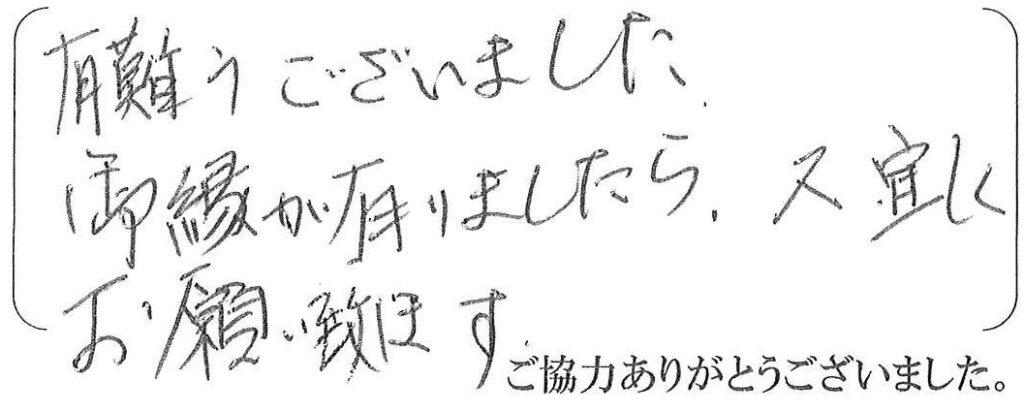 有難うございました.
御縁が有りましたら、又宜しく
お願い致します.
ご協力ありがとうございました。